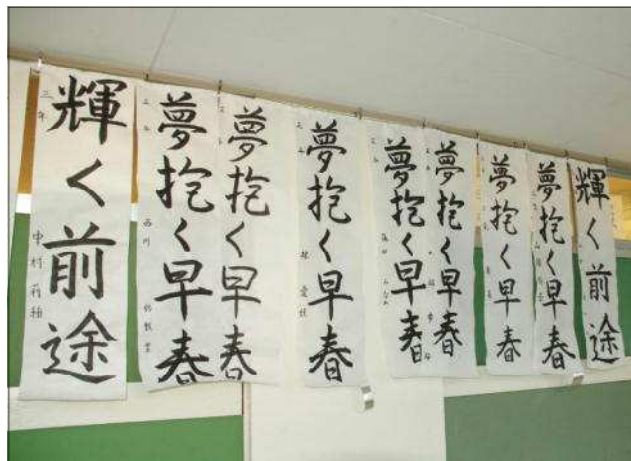 輝く前途
三年
中村
夢抱く早春
三年
西川
夢抱く早春
夢抱く早春
夢抱く早春
夢抱く早春
夢抱く早春
夢抱く早春
輝く前途